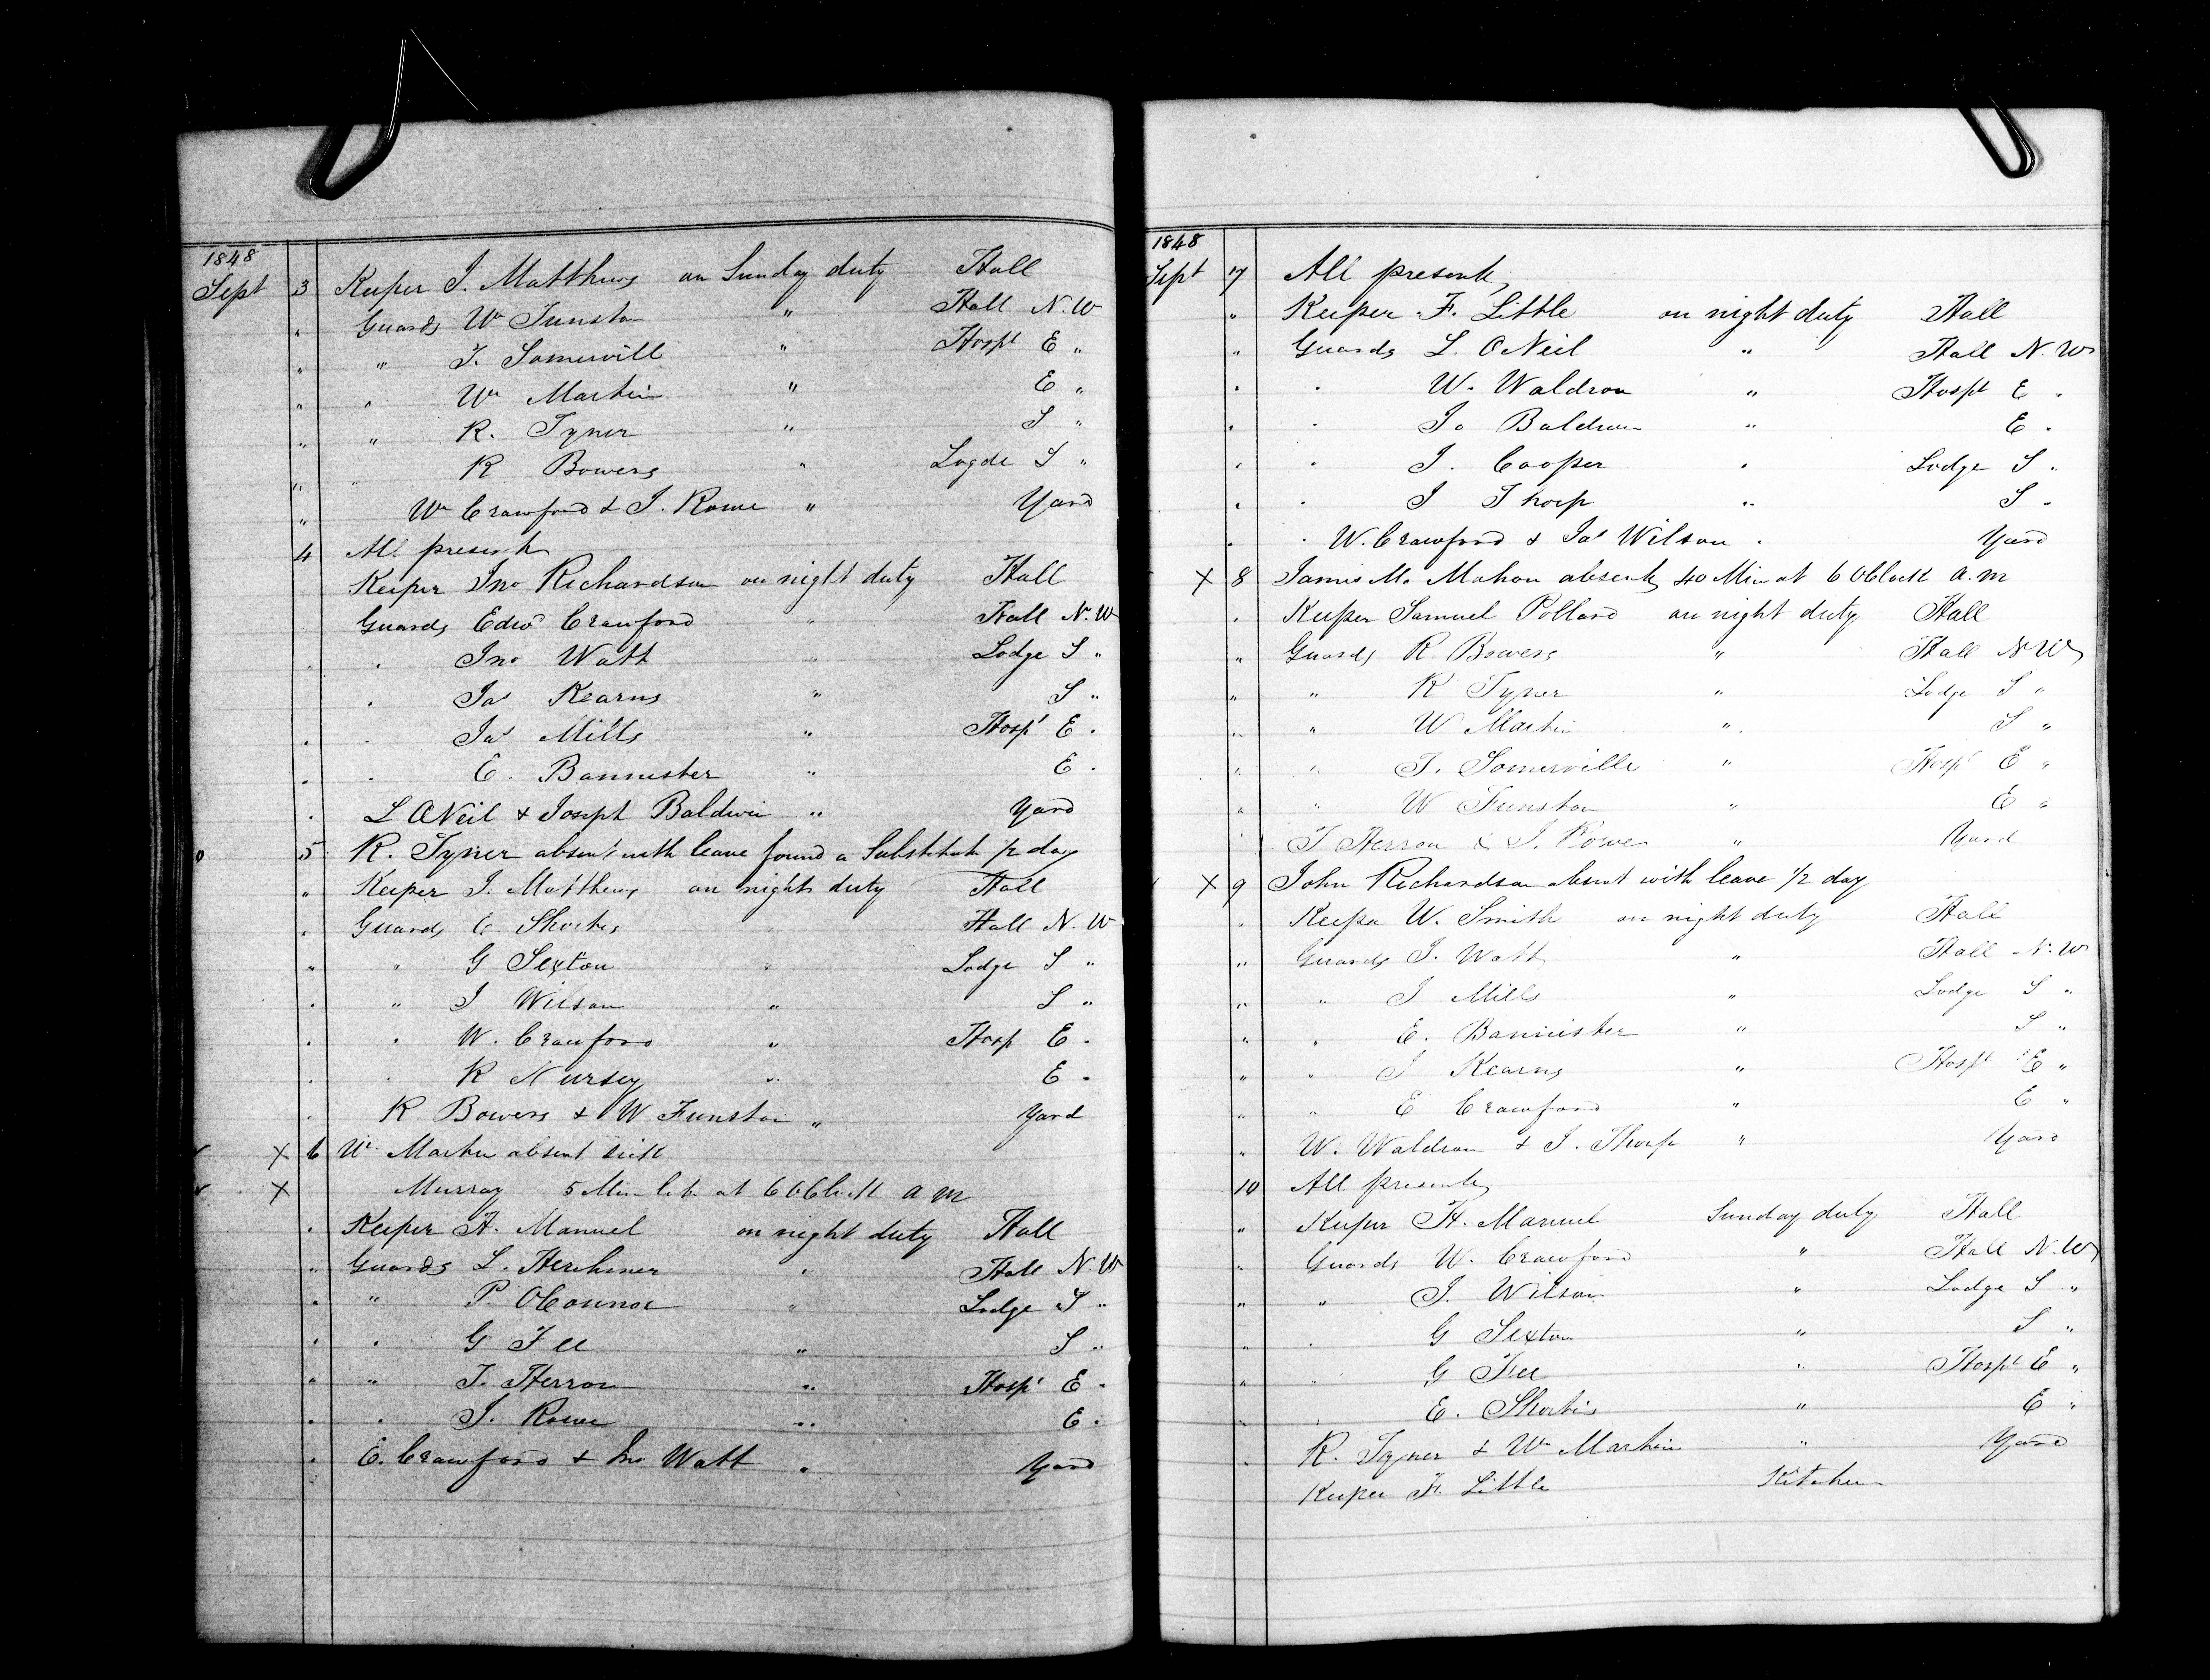 1848
Sept 3 Keeper J. Matthews on Sunday duty Hall
" Guards Wm Funston " Hall N. W
" " T. Somervill " Hospl E "
" " Wm Martin " E "
" " R. Tyner " S "
" " R Bowers " Logde S "
" Wm Crawford & J. Rowe " Yard
4 All present
Keeper Jno Richardson on night duty Hall
Guards Edwd Crawford " Hall N. W
" " Jno Watt " Lodge S "
" Jas Kearns " S "
" " Jas Mills " Hospl E "
" " E. Bannister " E "
" L ONeil & Joseph Baldwin " Yard
5 R. Tyner absent with leave found a Substitute 1/2 day
" Keeper J. Matthews on night duty Hall
" Guards E Shortis " Hall N. W
" " G Sexton " Lodge S "
" " J Wilson " S "
" " W. Crawford " Hosp E "
" " R Nursey " E "
" R Bowers & W Funston " Yard
X 6 Wm Martin absent sick
X Murray 5 Min late at 6 OClock a m
" Keeper H. Manuel on night duty Hall
" Guards L. Herchmer " Hall N. W
" " P. OConnor " Lodge S "
" " G Fee " S "
" " T. Herron " Hospl E "
" " J. Rowe " E "
" E. Crawford & Jno Watt " Yard
1848
Sept 7 All present
" Keeper F. Little on night duty Hall
" Guards L. ONeil " Hall N. W
" " W. Waldron " Hospl E "
" " Jo Baldwin " E "
" " J. Cooper " Lodge S "
" " J Thorp " S "
" " W. Crawford & Jas Wilson " Yard
X 8 James Mc Mahon absent 40 Min at 6 OClock a. m
" Keeper Samuel Pollard on night duty Hall
" Guards R. Bowers " Hall N W
" " R Tyner " Lodge S "
" " W Martin " S "
" " T. Somerville " Hospl E "
" " W Funston " E "
" T Herron & J. Rowe " Yard
X 9 John Richardson absent with leave 1/2 day
" Keeper W. Smith on night duty Hall
" Guards J. Watt " Hall N. W
" " J Mills " Lodge S "
" " E. Bannister " S "
" " J Kearns " Hospl E "
" " E Crawford " E "
" W. Waldron & J. Thorp " Yard
10 All present
" Keeper H. Manuel Sunday duty Hall
" Guards W. Crawford " Hall N. W
" " J. Wilson " Lodge S "
" " G Sexton " S "
" " G Fee " Hospl E "
" " E. Shortis " E "
" R. Tyner & Wm Martin " Yard
Keeper F. Little Kitchen